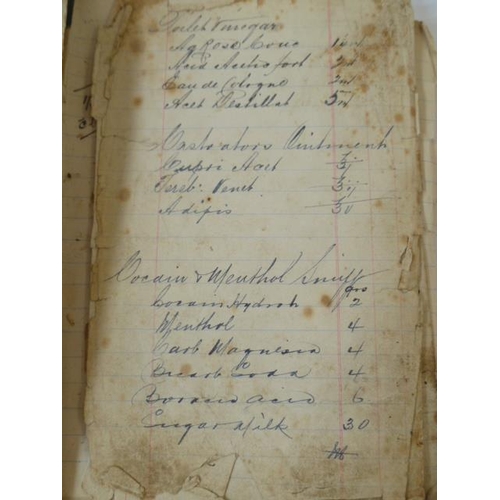 Toilet Vinegar
Aq Rose Conc
Acid Acetic fort
Eau de Cologne
Acet Destillat 5
Castrators Ointment
Cupri Acet ʒj
Tereb: Venet ʒij
Adipis
Cocain & Menthol Snuff
grs
Cocain Hydroch 2
Menthol 4
Carb Magnesia 4
Bicarb Soda 4
Boracic Acid 6
Sugar Milk 30
M